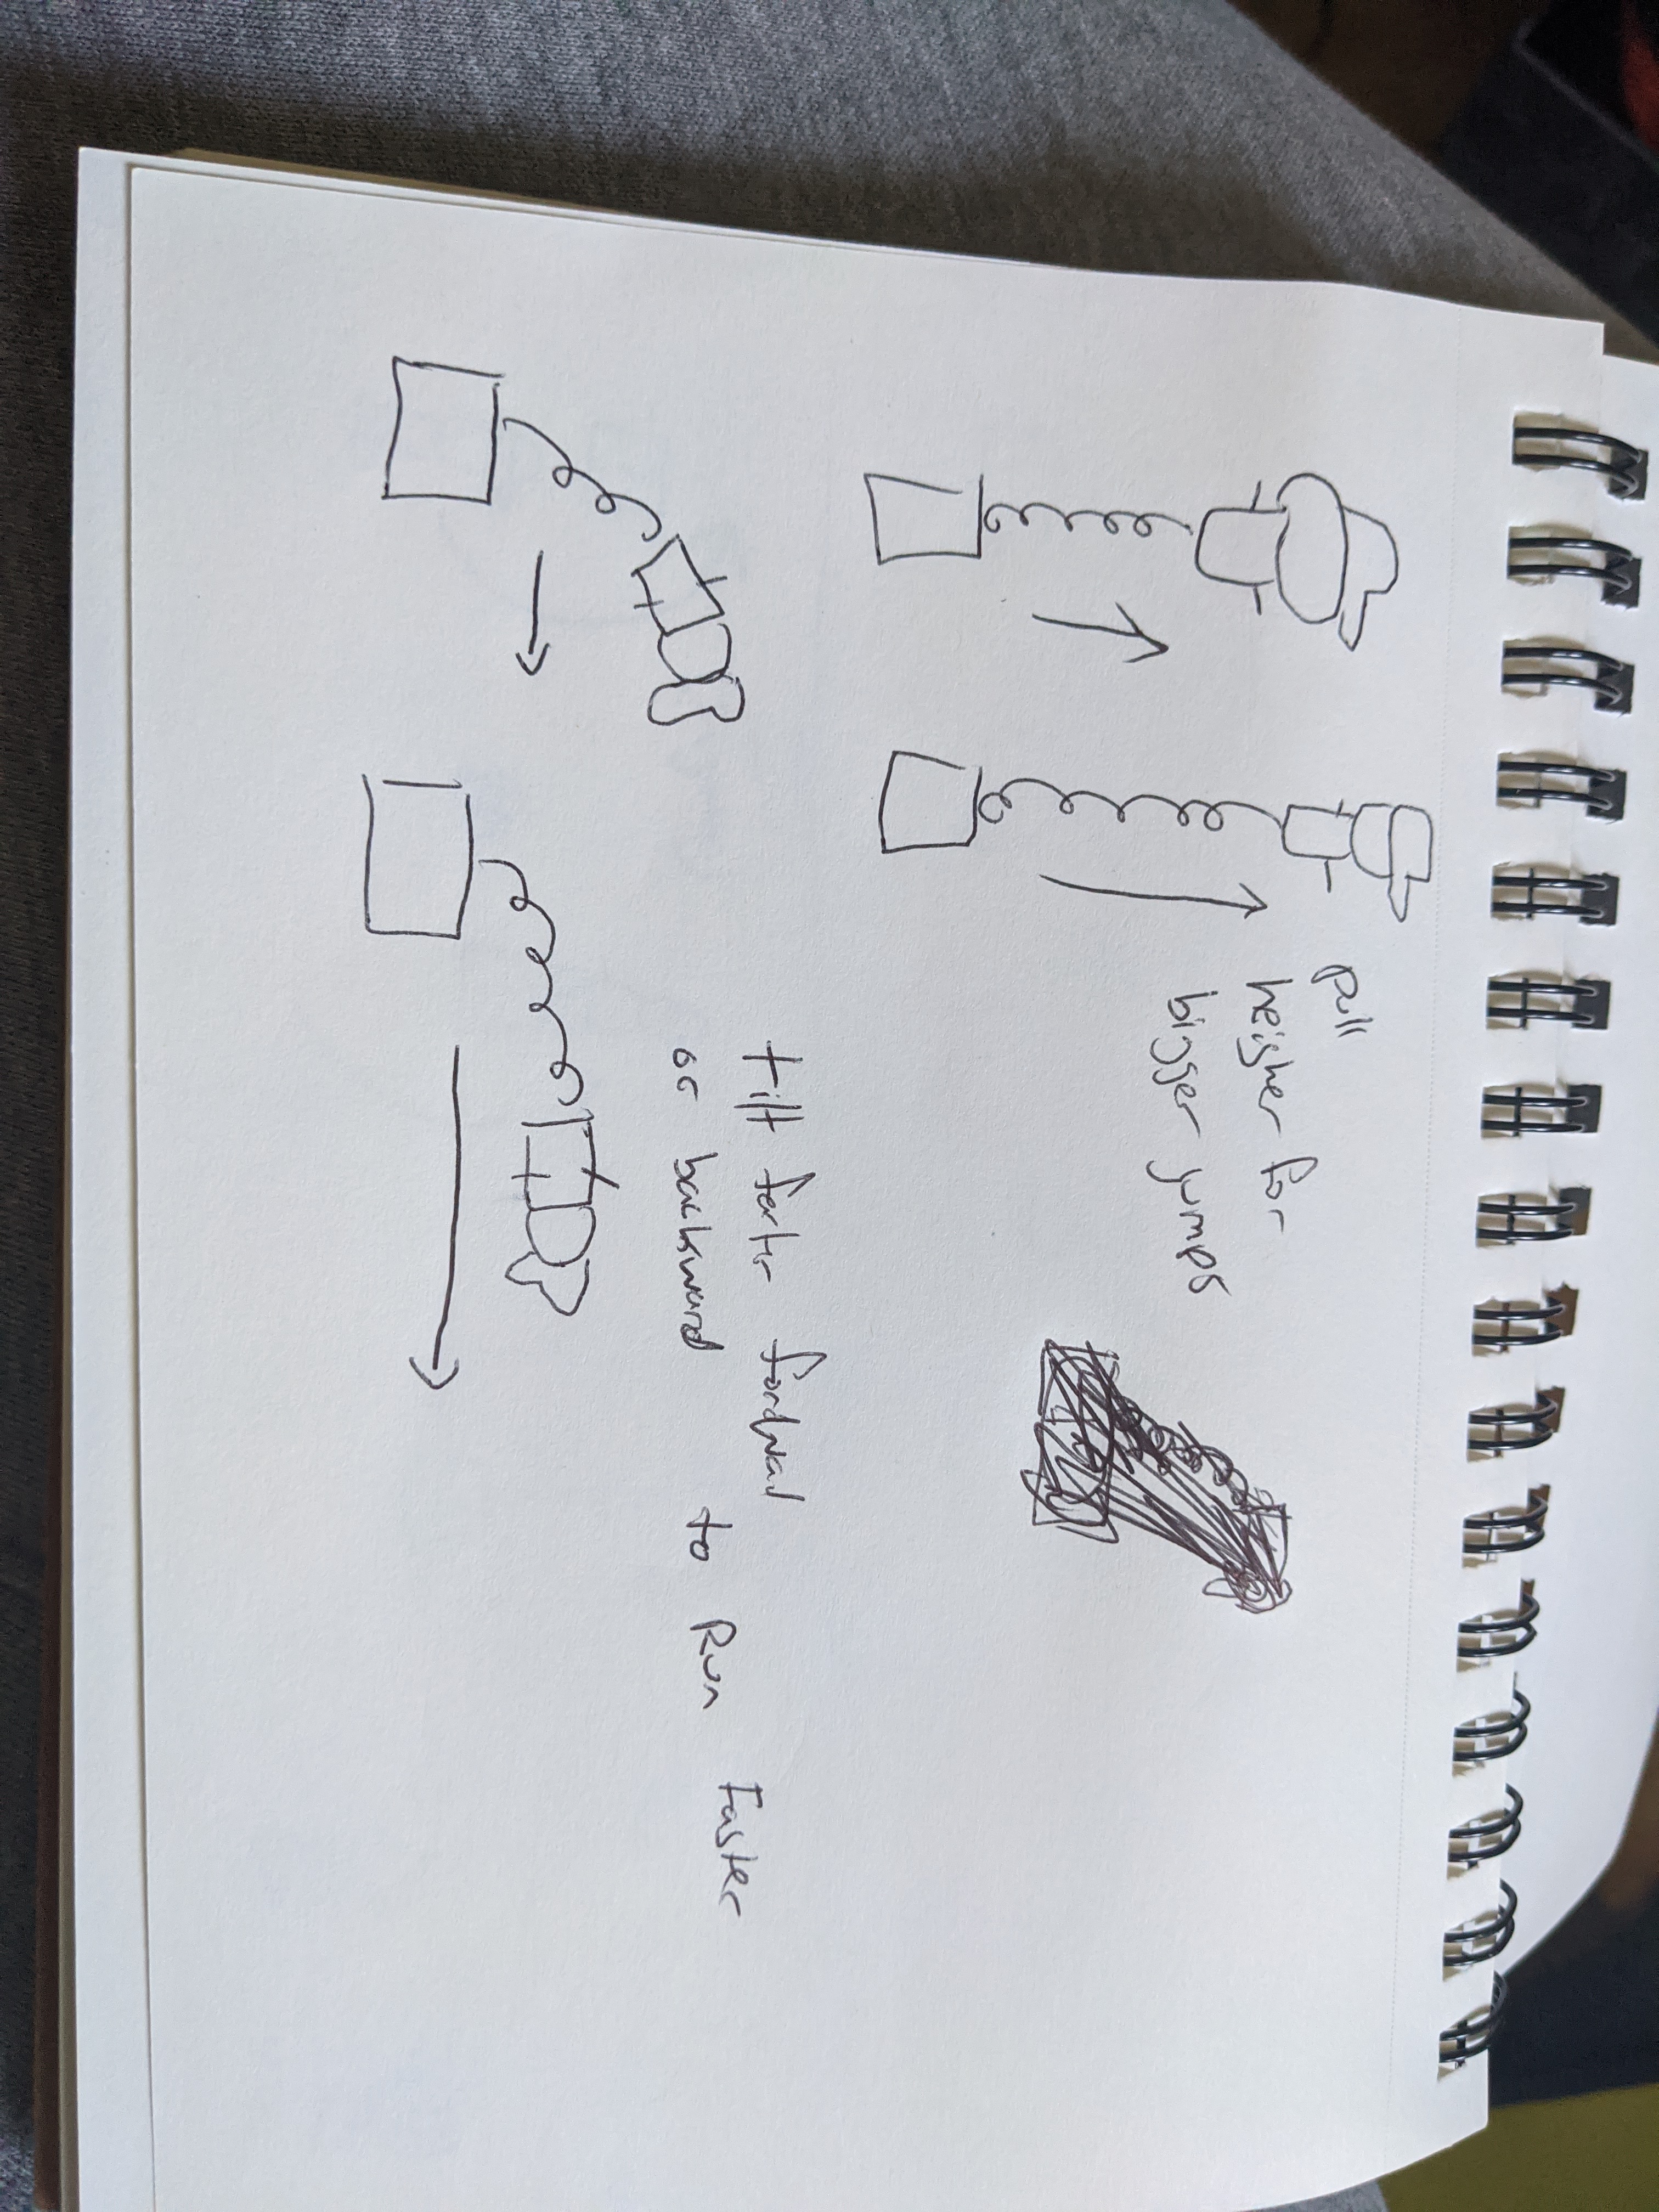 pull
heigher for
bigger jumps
tilt farter fordward
or backward to Run Faster